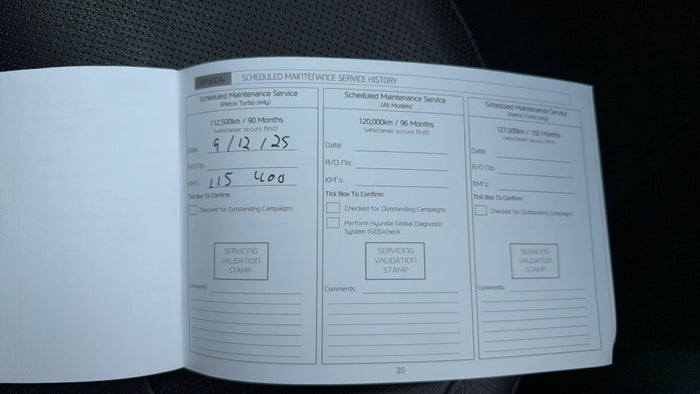 HYUNDAI SCHEDULED MAINTENANCE SERVICE HISTORY
Scheduled Maintenance Service
(Petrol Turbo only)
112,500km / 90 Months
(whichever occurs first)
Date: 9 / 12 / 25
R/O No:
KM's: 115 400
Tick Box To Confirm:
Checked for Outstanding Campaigns
SERVICING
VALIDATION
STAMP
Comments:
Scheduled Maintenance Service
(All Models)
120,000km / 96 Months
(whichever occurs first)
Date:
R/O No:
KM's:
Tick Box To Confirm:
Checked for Outstanding Campaigns
Perform Hyundai Global Diagnostic
System (GDS)check
SERVICING
VALIDATION
STAMP
Comments:
Scheduled Maintenance Service
(Petrol Turbo only)
127,500km / 102 Months
(whichever occurs first)
Date:
R/O No:
KM's:
Tick Box To Confirm:
Checked for Outstanding Campaigns
SERVICING
VALIDATION
STAMP
Comments:
20